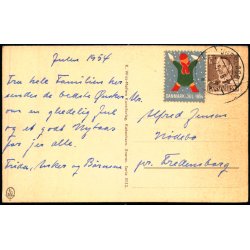 Julen 1954
Fra hele Familien her
sendes de bedste Ønsker
om en glædelig Jul
og et godt Nytaar
for jer alle.
Frida, Anker og Børnene
DANMARK JUL 1954
Hr.
Alfred Jensen
Nødebo
pr. Fredensborg